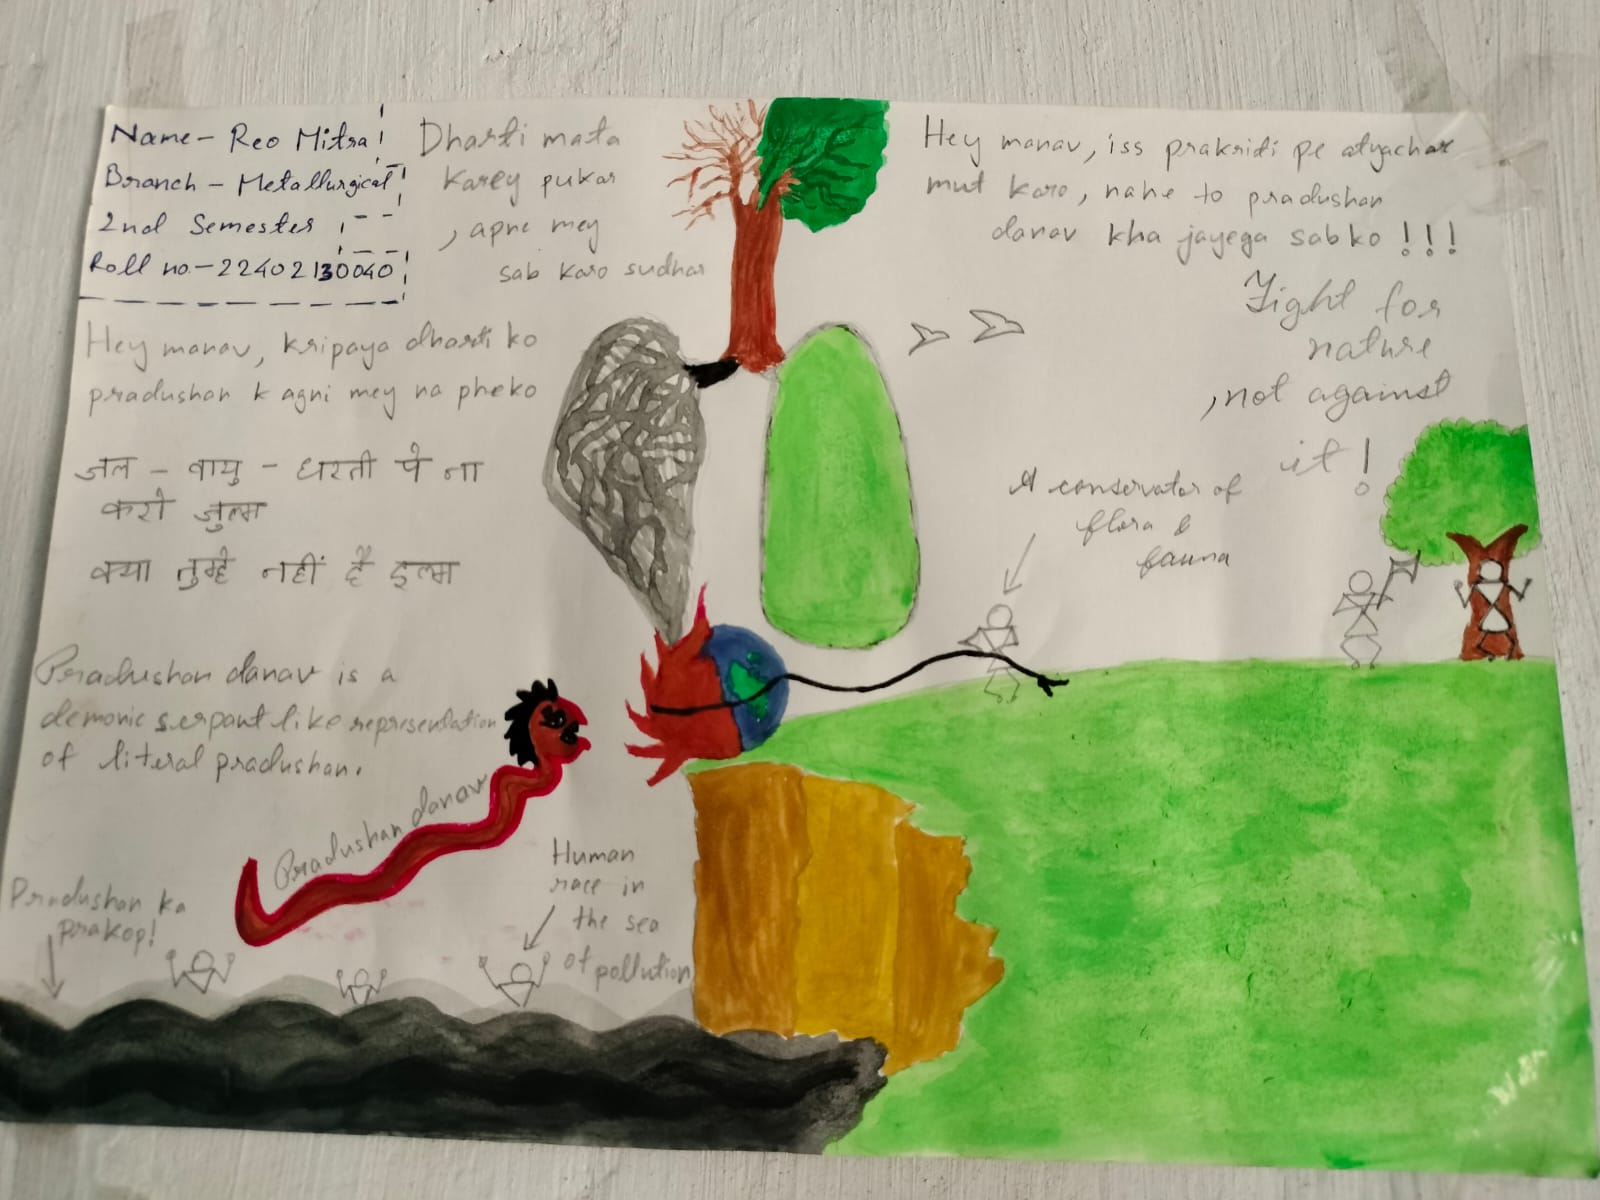 Name - Reo Mitra
Branch - Metallurgical
2nd Semester
Roll no. - 22402130040
Dharti mata
karey pukar
, apne mey
sab karo sudhar
Hey manav, iss prakriti pe atyachar
mut karo, nahe to pradushan
danav kha jayega sabko !!!
Fight for
nature
, not against
it !
Hey manav, kripaya dharti ko
pradushan k agni mey na pheko
जल - वायु - धरती पे ना
करो जुल्म
क्या तुम्हे नहीं है इल्म
A conservator of
flora &
fauna
Pradushan danav is a
demonic serpant like representation
of literal pradushan.
Pradushan danav
Human
race in
the sea
of pollution
Pradushan ka
prakop!